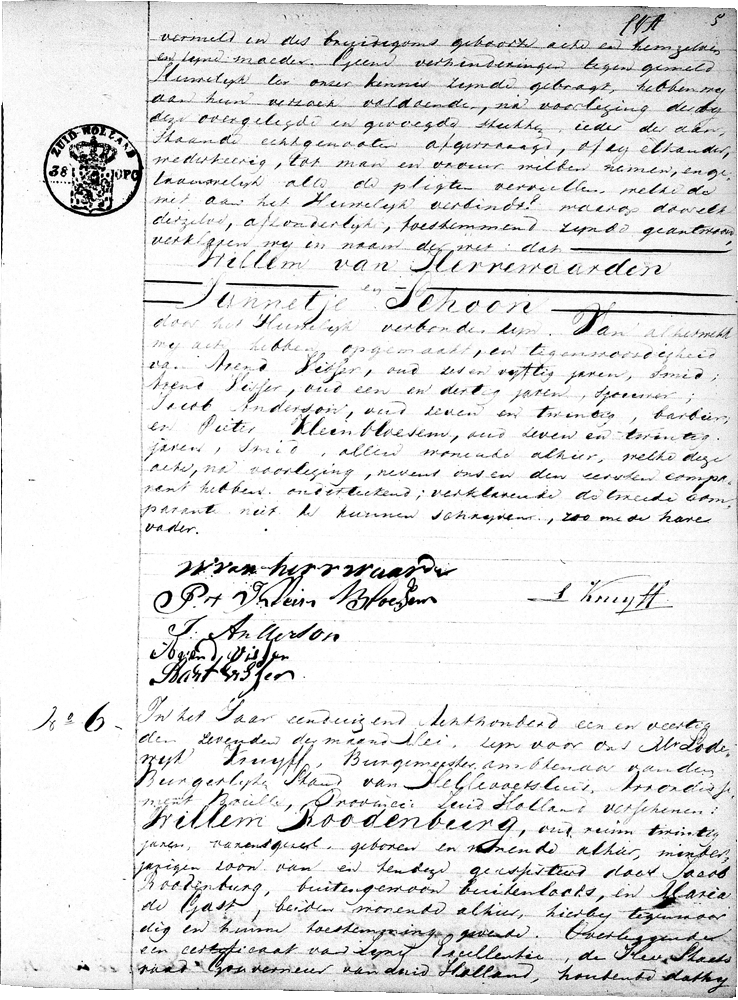 5
vermeld in des bruidegoms geboorte acte en hemzelven
en zijne moeder. Geene verhinderingen tegen gemeld
Huwelijk ter onzer kennis zijnde gebragt, hebben wij
aan hun verzoek voldoende, na voorlezing der bij
deze overgelegde en gevoegde stukken, ieder der aan,
staande echtgenooten afgevraagd, of zij elkander,
wederkeerig, tot man en vrouw wilden nemen, en ge,
trouwelijk alle de pligten vervullen, welke de
wet aan het Huwelijk verbindt? waarop door elk
derzelve, afzonderlijk, toestemmend zijnde geantwoord,
verklaren wij in naam der wet: dat
Willem van Herrewaarden
en
Jannetje Schoon
door het Huwelijk verbonden zijn. Van al hetwelk
wij acte hebben opgemaakt, in tegenwoordigheid
van Arend Visser, oud zes en vijftig jaren, smid;
Arend Visser, oud een en dertig jaren,
Jacob Anderson, oud zeven en twintig, barbier,
en Pieter Kleinbloesem, oud zeven en twintig
jaren, smid, allen wonende alhier, welke deze
acte, na voorlezing, nevens ons en den eersten compa,
rant hebben onderteekend; verklarende de tweede com,
parante niet te kunnen schrijven, zoo mede hare
vader.
W van herrewaarde
Pr Klein Bloesem
L Kruyff
J. Anderson
Arend Visser
Bart Visser
No 6
In het Jaar eenduizend Achthonderd een en veertig
den zevenden der maand Mei, zijn voor ons Mr Lode,
wijk Kruyff, Burgemeester, ambtenaar van den
Burgerlijke Stand van Hellevoetsluis, Arrondisse,
ment Brielle, Provincie Zuid Holland verschenen:
Willem Roodenburg, oud ruim twintig
jaren, varensgezel, geboren en wonende alhier, minder,
jarigen zoon van en ten deze geassisteerd door Jacob
Roodenburg, buitengewoon buitenloods, en Maria
de Gast, beiden wonende alhier, hierbij tegenwoor
dig en hunne toestemming gevende. Overleggende
een certificaat van Zijne Excellentie, de Heer Staats
raad Gouverneur van Zuid Holland, houdende dat hij
ZUID-HOLLAND
38 OPC